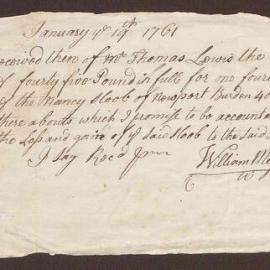 January ye 19th 1761
received then of Mr Thomas Lewis the
of fourty five Pound in full for one four
of the Nancy Sloob of Newport Burden 40
there abouts which I promise to be accounta
the Loss and gaine of ye said Sloob to the said
I Say Recd pr me
William